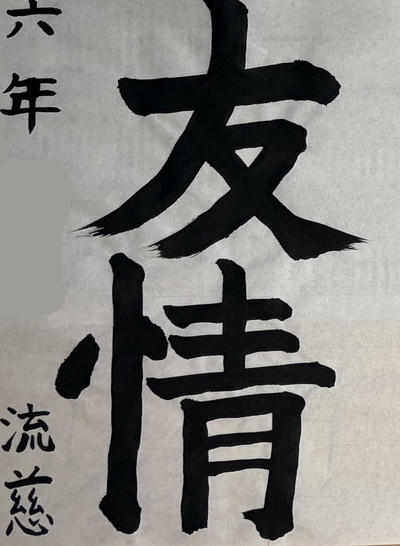 友情
六年
流慈